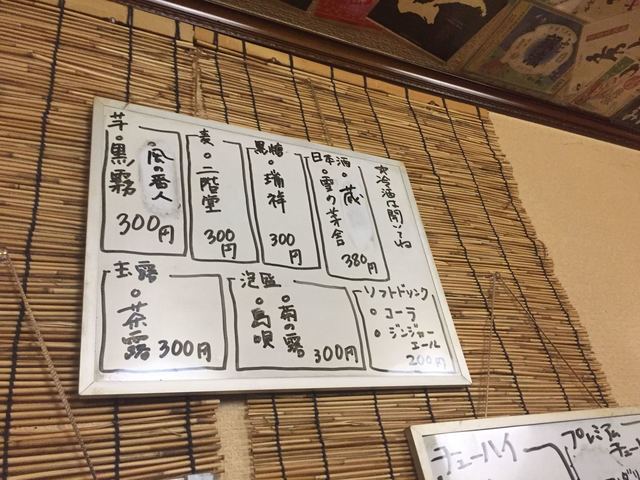 ※冷酒は聞いてね
日本酒
・蔵
・雪の茅舎
380円
黒糖
・瑞祥
300円
麦
・二階堂
300円
芋
・黒霧
風の番人
300円
ソフトドリンク
・コーラ
・ジンジャー
エール
200円
泡盛
・南の露
・島唄
300円
玉露
・茶露
300円
チューハイ
プレミアム
チュー